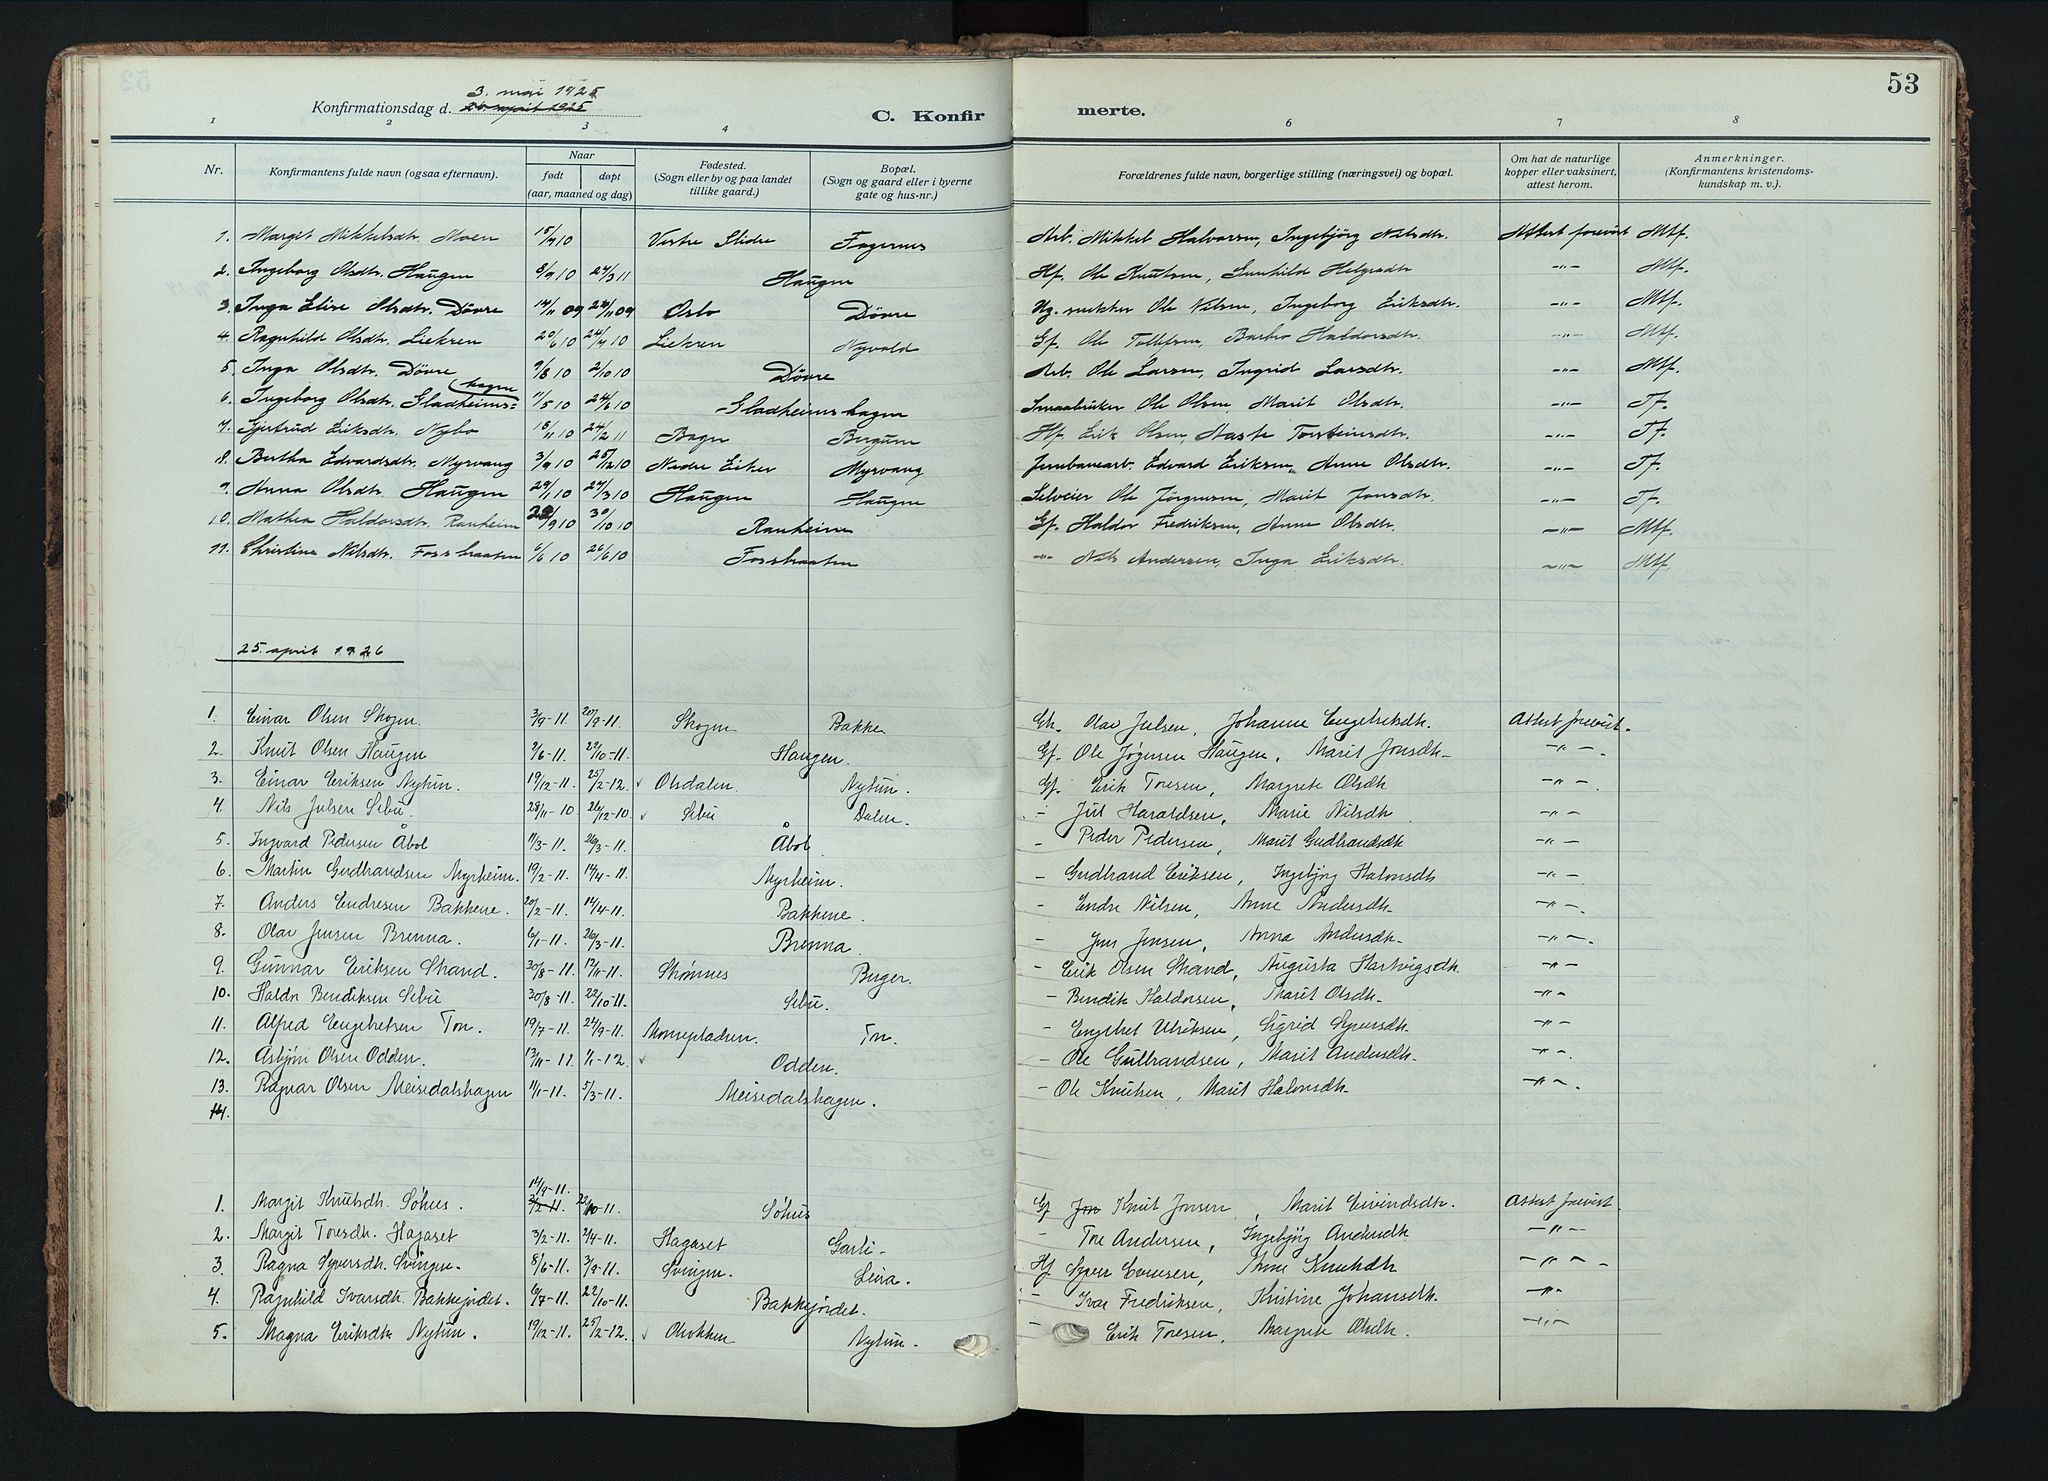 53
3. mai 1925
Konfirmationsdag d. 26. april 1925
C. Konfir merte.
1 2 3 4 6 7 8
Nr. Konfirmantens fulde navn (ogsaa efternavn). Naar født døpt (aar, maaned og dag) Fødested. (Sogn eller by og paa landet tillike gaard.) Bopæl. (Sogn og gaard eller i byerne gate og hus-nr.) Forældrenes fulde navn, borgerlige stilling (næringsvei) og bopæl. Om hat de naturlige kopper eller vaksinert, attest herom. Anmerkninger. (Konfirmantens kristendomskundskap m. v.)
1. Margit Mikkelsdtr. Moen 15/7 10 Vestre Slidre Fagernes Arb. Mikkel Halvorsen, Ingebjörg Nilsdtr. Attest forevist Mtf.
2. Ingeborg Olsdtr. Haugen 8/9 10 24/3 11 Haugen Hf. Ole Knutsen, Gunhild Helgesdtr -"- Mtf.
3. Inga Elise Olsdtr. Dövre 14/11 09 28/11 09 Oslo Dövre Ole Nilsen, Ingeborg Eriksdtr. -"- Mtf.
4. Ragnhild Olsdtr. Liekren 20/6 10 24/7 10 Liekren Nyvold Gf. Ole Tollefsen, Barbro Haldorsdtr. -"- Mtf.
5. Inga Olsdtr. Dövre 9/8 10 2/10 10 Dövre Arb. Ole Larsen, Ingrid Larsdtr. -"- Mtf.
6. Ingeborg Olsdtr. Gladheims= hagen 11/5 10 24/6 10 Gladheimshagen Smaabruker Ole Olsen, Marit Olsdtr. -"- Tf.
7. Gjertrud Eriksdtr. Nybo 18/11 10 24/2 11 Bagn Bergum Hf. Erik Olsen, Aaste Torsteinsdtr. -"- Tf.
8. Bertha Edvardsdtr. Myrvang 3/9 10 25/12 10 Nedre Eiker Myrvang Jernbanearb. Edvard Eriksen, Anne Olsdtr. -"- Tf.
9. Anna Olsdtr. Haugen 29/1 10 24/3 10 Haugen Haugen Selveier Ole Jörgensen, Marit Jonsdtr. -"- Tf.
10. Mathea Haldorsdtr. Ranheim /9 10 30/10 10 Ranheim Gf. Haldor Fredriksen, Anne Olsdtr. -"- Mtf.
11. Christine Nilsdtr. Fossbraaten 6/6 10 26/6 10 Fossbraaten -"- Nils Andersen, Inga Eriksdtr. -"- Mtf.
25. april 1926
1. Einar Olsen Skogen. 3/9-11. 20/9-11. Skogen Bakke Olav Julsen, Johanne Engebretsdtr. Attest forevist.
2. Knut Olsen Haugen 2/6-11. 22/10-11. Haugen. Gf. Ole Jørgensen Haugen, Marit Jonsdtr- -"-.
3. Einar Eriksen Nytun. 19/12-11. 25/2-12. Olsdalen. Nytun. Gf. Erik Toresen, Margrete Olsdtr -"-
4. Nils Julsen Sebu. 28/11-10 26/12-10. Sebu Dalen. - Jul Haraldsen, Marie Nilsdtr -"-
5. Ingvard Pedersen Åbol 11/3-11. 26/3-11. Åbol. - Peder Pedersen, Marit Gudbrandsdtr -"-
6. Martin Gudbrandsen Myrheim. 19/2-11. 14/4-11. Myrheim. - Gudbrand Eriksen, Ingebjörg Halvorsdtr -"-
7. Anders Endresen Bakkene. 20/2-11. 14/4-11. Bakkene. - Endre Nilsen, Anne Andersdtr- -"-
8. Olav Jensen Brenna. 6/1-11. 26/3-11. Brenna - Jens Jensen, Anna Andersdtr- -"-
9. Gunnar Eriksen Strand. 30/8-11. 12/11-11. Strømnes Berger. - Erik Olsen Strand, Augusta Hartvigsdtr. -"-
10. Haldor Bendiksen Sebu 30/8-11. 22/10-11. Sebu. - Bendik Haldorsen, Marit Olsdtr- -"-
11. Alfred Engebretsen Ton. 19/7-11. 24/9-11. Ton. - Engebret Ulriksen, Sigrid Syversdtr. -"-
12. Asbjörn Olsen Odden. 13/11-11 1/1-12. Odden. - Ole Gulbrandsen, Marit Andersdtr- -"-
13. Ragnar Olsen Meisedalshagen 11/1-11. 5/3-11. Meisedalshagen. - Ole Knutsen, Marit Halvorsdtr- -"-
14.
14/9-11.
1. Margit Knutsdtr. Söhus. 2/2-11. 22/10-11. Söhus Gf Jon Knut Jonsen, Marit Eivindsdtr. Attest forevist
2. Margit Toresdtr. Hagaset 3/2-11. 2/4-11. Hagaset Garli- - Tore Andersen, Ingebjörg Andersdtr. -"-
3. Ragna Syversdtr. Svingen- 8/6-11. 3/9-11. Svingen. Leira. Hf Syver Evensen, Anne Knutsdtr -"-
4. Ragnhild Ivarsdtr. Bakkejordet. 6/7-11. 22/10-11. Bakkejordet. - Ivar Fredriksen, Kristine Johansdtr. -"-
5. Magna Eriksdtr Nytun. 19/12-11. 25/2-12. Nytun. - Erik Toresen, Margrete Olsdtr. -"-